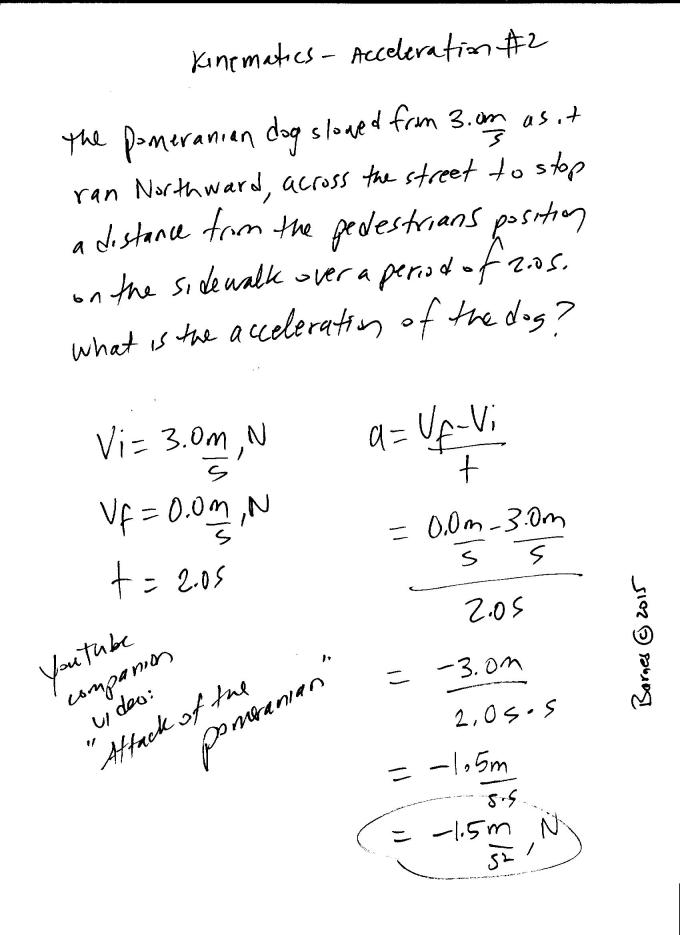 Kinematics - Acceleration #2
The pomeranian dog slowed from 3.0m/s as it
ran Northward, across the street to stop
a distance from the pedestrians position
on the sidewalk over a period of 2.0s.
What is the acceleration of the dog?
Vi = 3.0m/s, N
Vf = 0.0m/s, N
t = 2.0s
a = Vf-Vi
t
= 0.0m/s - 3.0m/s
2.0s
= -3.0m
2.0s·s
= -1.5m
s·s
= -1.5m/s², N
Youtube
companion
video:
"Attack of the
pomeranian"
Barnes © 2015